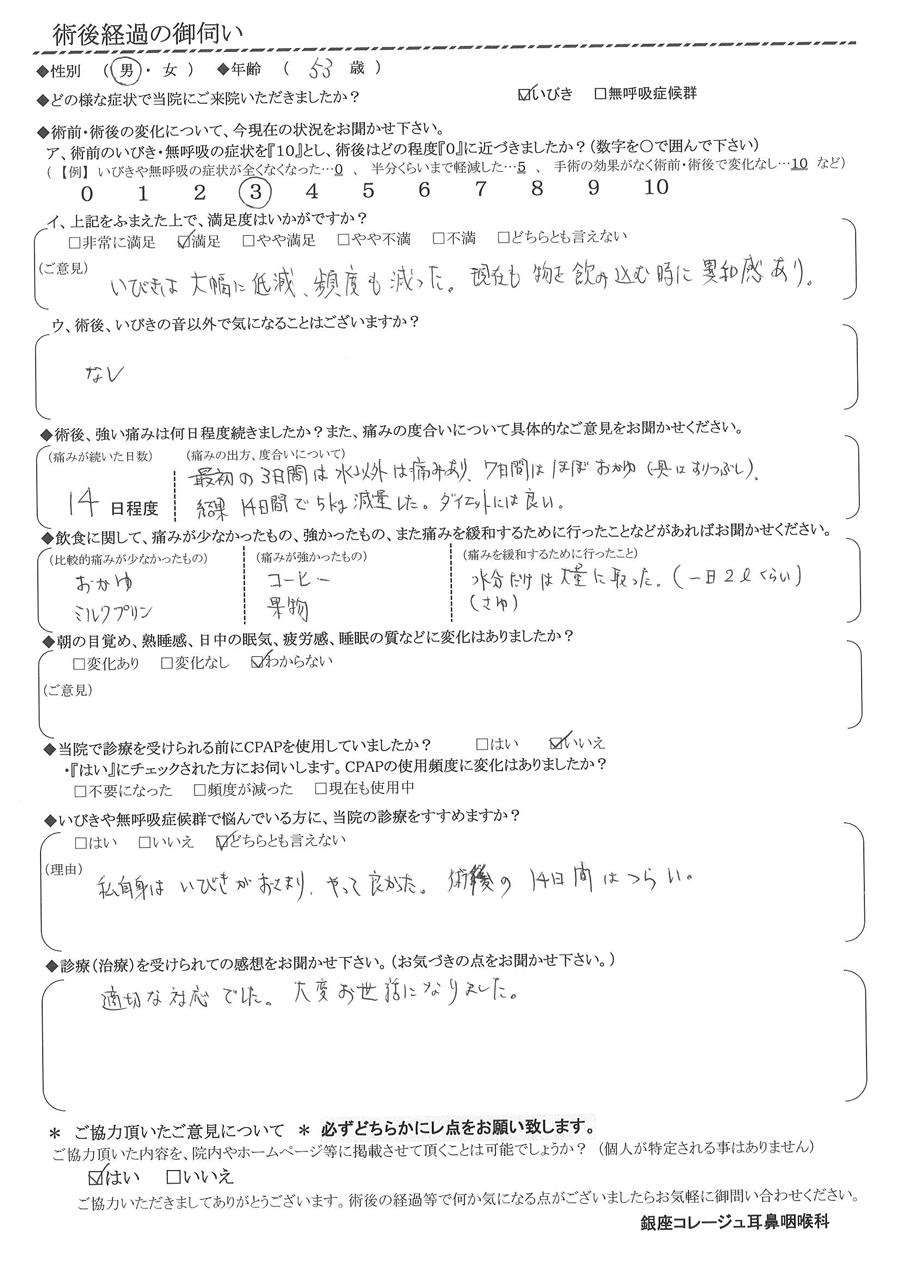 術後経過の御伺い
◆性別 (男・女) ◆年齢 ( 53 歳 )
◆どの様な症状で当院にご来院いただきましたか? ☑いびき □無呼吸症候群
◆術前・術後の変化について、今現在の状況をお聞かせ下さい。
ア、術前のいびき・無呼吸の症状を『10』とし、術後はどの程度『0』に近づきましたか?(数字を〇で囲んで下さい)
(【例】いびきや無呼吸の症状が全くなくなった…0 、 半分くらいまで軽減した…5 、 手術の効果がなく術前・術後で変化なし…10 など)
0 1 2 3 4 5 6 7 8 9 10
イ、上記をふまえた上で、満足度はいかがですか?
□非常に満足 ☑満足 □やや満足 □やや不満 □不満 □どちらとも言えない
(ご意見)
いびきは大幅に低減、頻度も減った。現在も物を飲み込む時に異和感あり。
ウ、術後、いびきの音以外で気になることはございますか?
なし
◆術後、強い痛みは何日程度続きましたか?また、痛みの度合いについて具体的なご意見をお聞かせください。
(痛みが続いた日数) (痛みの出方、度合いについて)
最初の3日間は水以外は痛みあり、7日間はほぼおかゆ(具はすりつぶし).
14日程度 結果14日間で5kg減量した。ダイエットには良い。
◆飲食に関して、痛みが少なかったもの、強かったもの、また痛みを緩和するために行ったことなどがあればお聞かせください。
(比較的痛みが少なかったもの) (痛みが強かったもの) (痛みを緩和するために行ったこと)
おかゆ コーヒー 水分だけは大量に取った。(一日2ℓくらい)
ミルクプリン 果物 (さゆ)
◆朝の目覚め、熟睡感、日中の眠気、疲労感、睡眠の質などに変化はありましたか?
□変化あり □変化なし ☑わからない
(ご意見)
◆当院で診療を受けられる前にCPAPを使用していましたか? □はい ☑いいえ
・『はい』にチェックされた方にお伺いします。CPAPの使用頻度に変化はありましたか?
□不要になった □頻度が減った □現在も使用中
◆いびきや無呼吸症候群で悩んでいる方に、当院の診療をすすめますか?
□はい □いいえ ☑どちらとも言えない
(理由)
私自身はいびきがおさまり、やって良かった。術後の14日間はつらい。
◆診療(治療)を受けられての感想をお聞かせ下さい。(お気づきの点をお聞かせ下さい。)
適切な対応でした。大変お世話になりました。
＊ ご協力頂いたご意見について ＊ 必ずどちらかにレ点をお願い致します。
ご協力頂いた内容を、院内やホームページ等に掲載させて頂くことは可能でしょうか? (個人が特定される事はありません)
☑はい □いいえ
ご協力いただきましてありがとうございます。術後の経過等で何か気になる点がございましたらお気軽に御問い合わせください。
銀座コレージュ耳鼻咽喉科